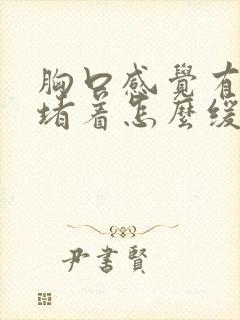 胸口感覺有
堵着怎麼緩
尹書賢